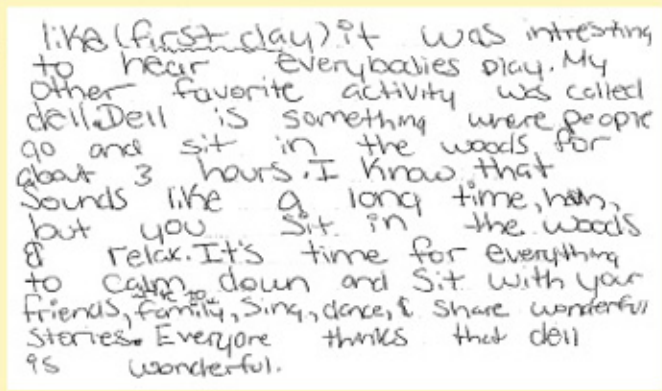 like (first day) it was intresting
to hear everybodies play. My
other favorite activity was called
dell. Dell is something were people
go and sit in the woods for
about 3 hours. I know that
sounds like a long time, huh,
but you sit in the woods
& relax. It's time for everything
to calm down and sit with your
friends, family, sing, dance, & share wonderful
stories. Everyone thinks that dell
is wonderful.